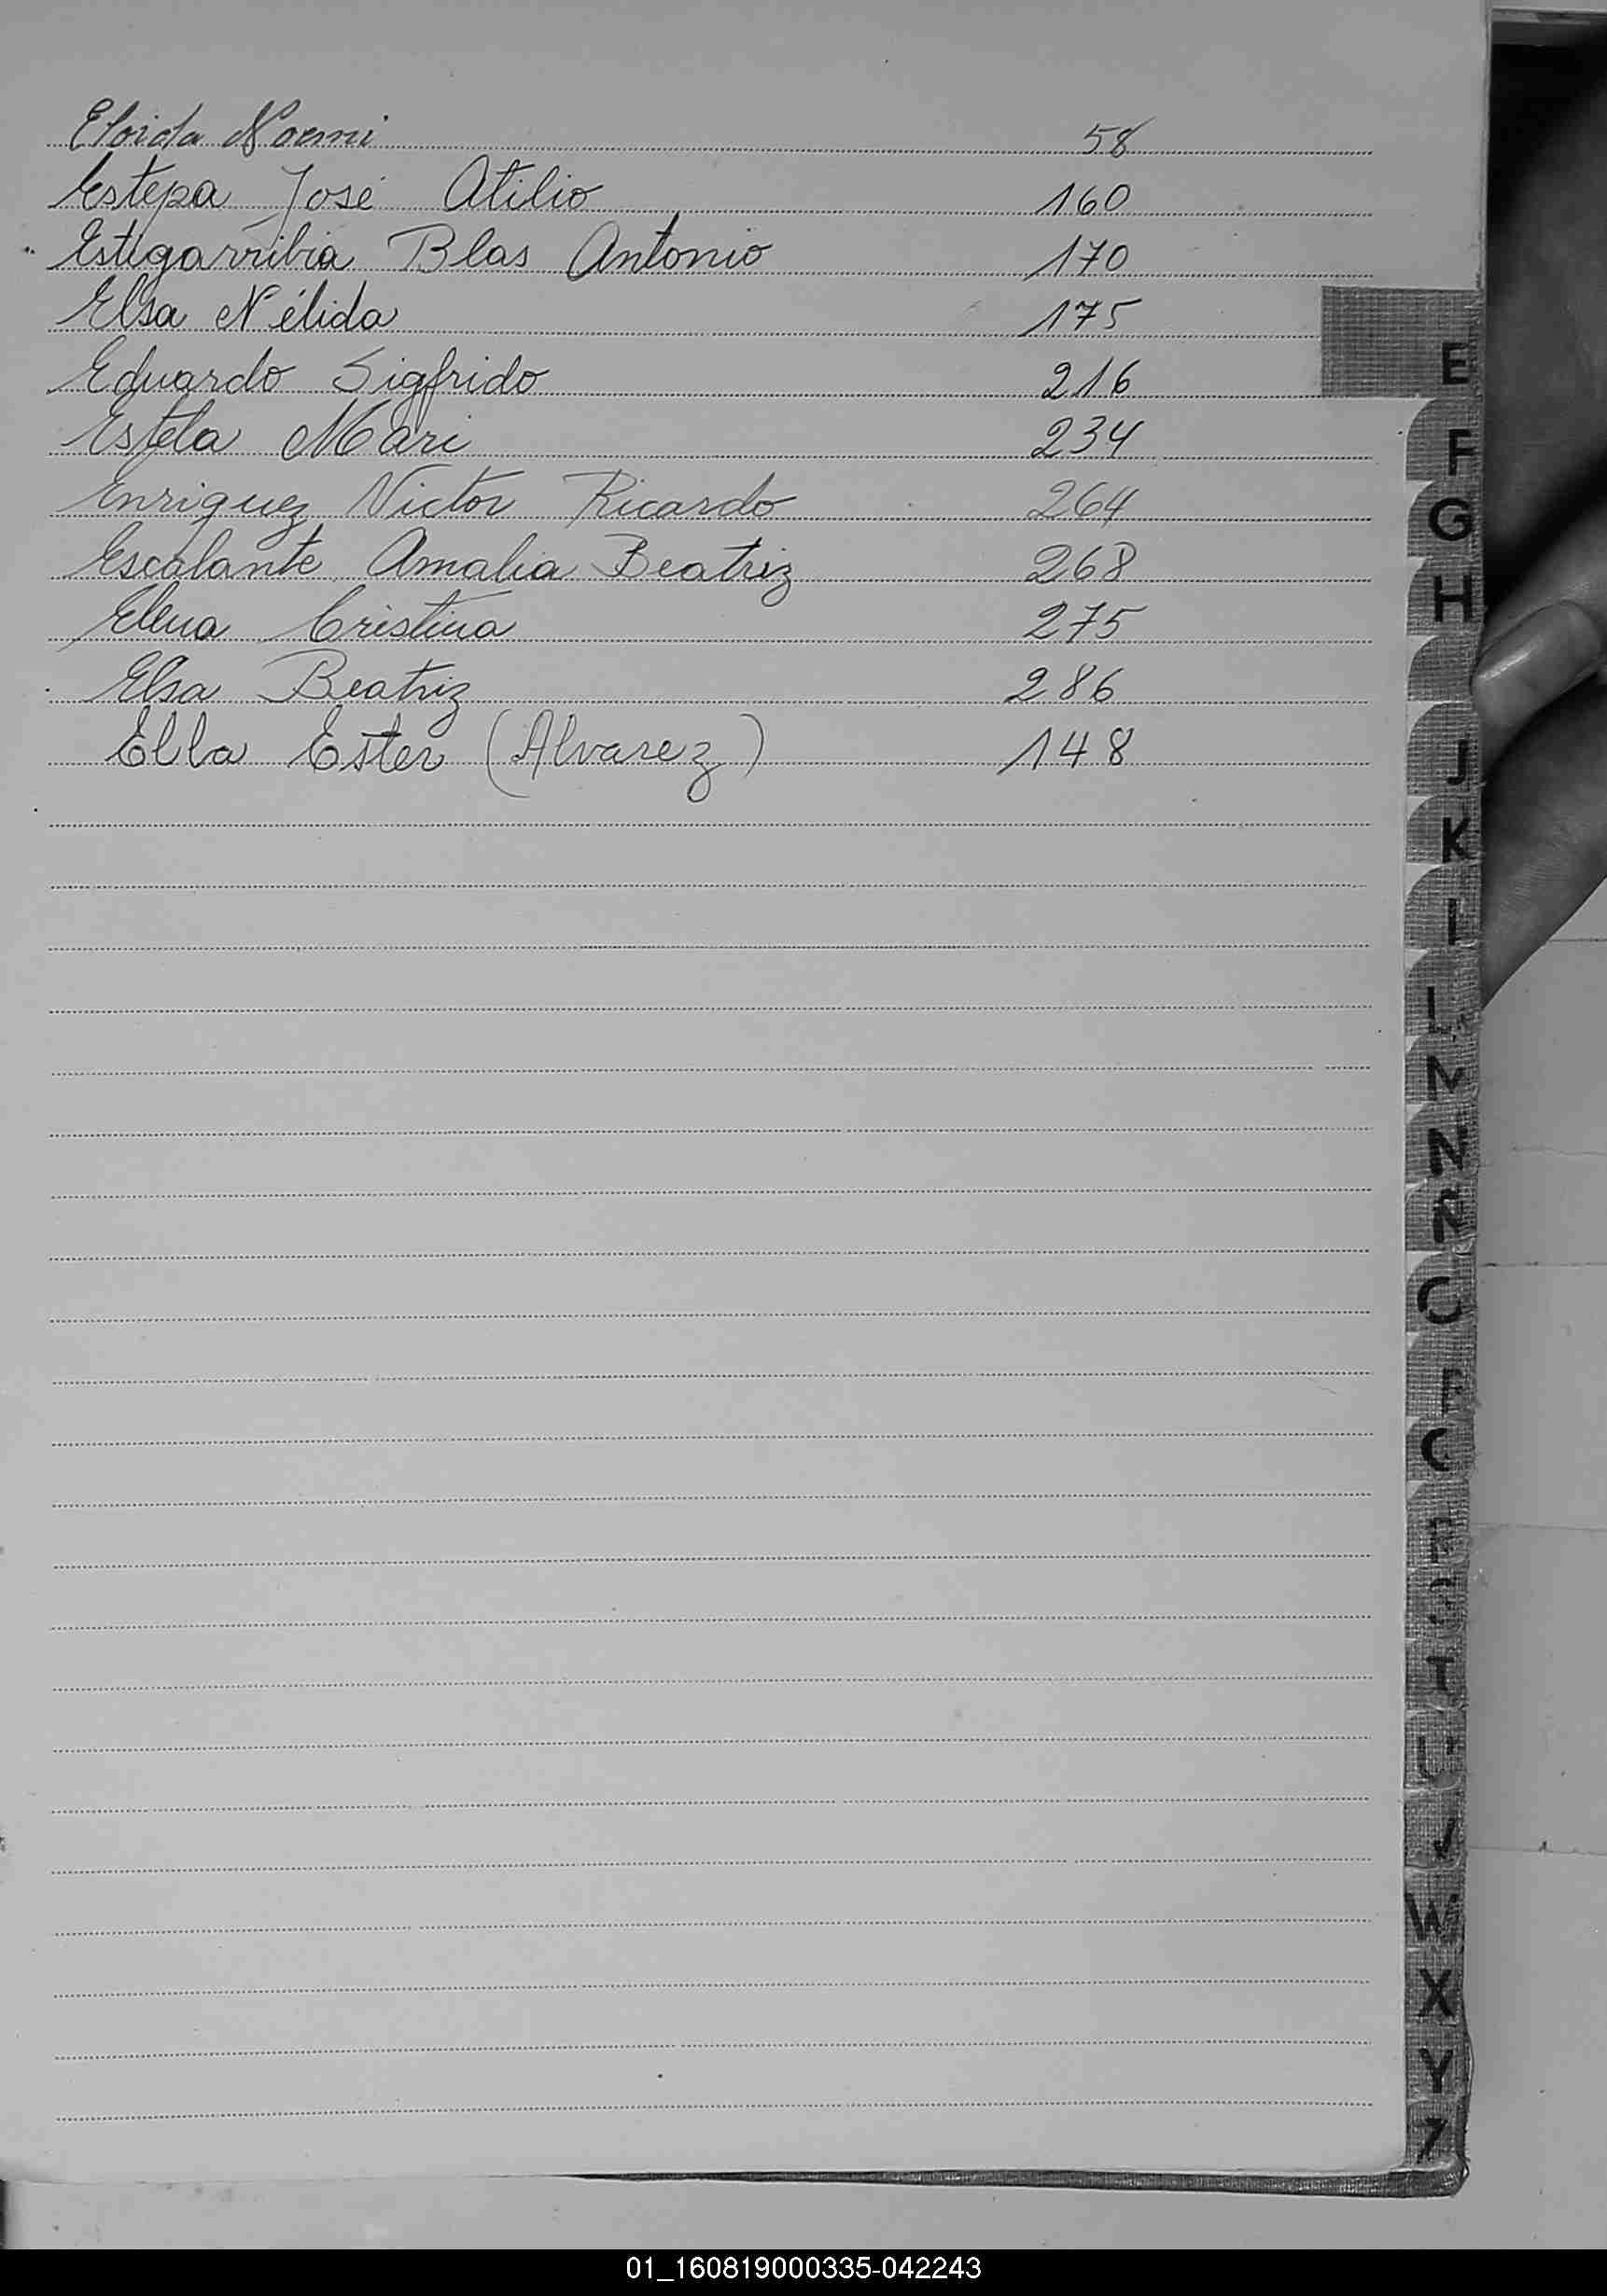 Eloida Noemi 58
Estepa José Atilio 160
Estigarribia Blas Antonio 170
Elsa Nélida 175
Eduardo Sigfrido 216
Estela Mari 234
Enriquez Victor Ricardo 264
Escalante Amalia Beatriz 268
Elena Cristina 275
Elsa Beatriz 286
Elba Ester (Alvarez) 148
E
F
G
H
J
K
N
T
U
W
X
Y
Z
01_160819000335-042243